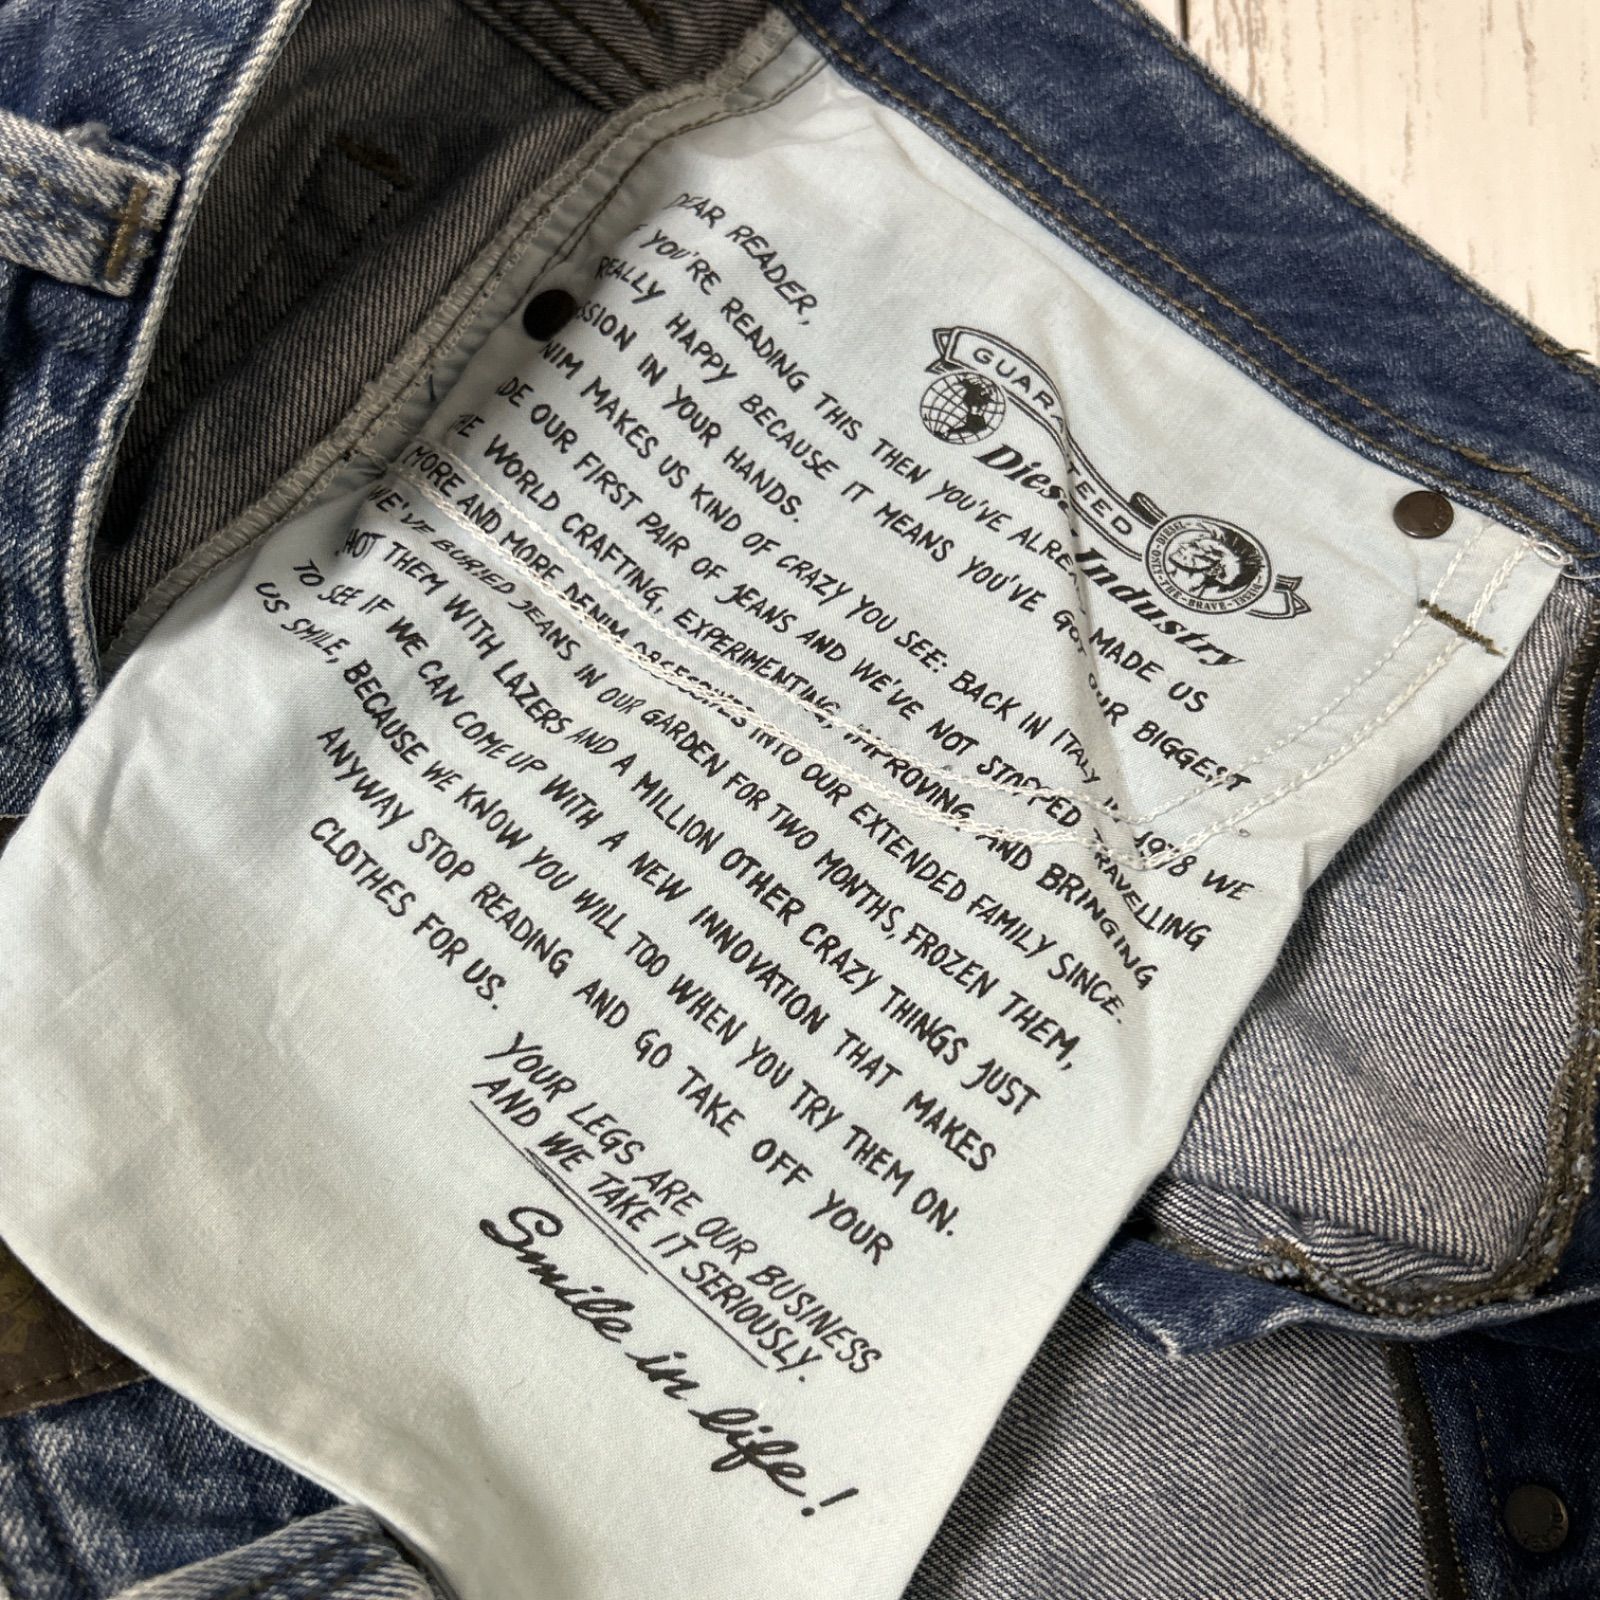 GUARANTEED
Diesel Industry
ONLY-DIESEL-THE-BRAVE
DEAR READER,
YOU'RE READING THIS THEN YOU'VE ALREADY MADE US
REALLY HAPPY BECAUSE IT MEANS YOU'VE GOT OUR BIGGEST
SSION IN YOUR HANDS.
NIM MAKES US KIND OF CRAZY YOU SEE: BACK IN ITALY IN 1978 WE
DE OUR FIRST PAIR OF JEANS AND WE'VE NOT STOPPED TRAVELLING
THE WORLD CRAFTING, EXPERIMENTING, IMPROVING, AND BRINGING
MORE AND MORE DENIM OBSESSIVES INTO OUR EXTENDED FAMILY SINCE.
WE'VE BURIED JEANS IN OUR GARDEN FOR TWO MONTHS, FROZEN THEM,
HOT THEM WITH LAZERS AND A MILLION OTHER CRAZY THINGS JUST
TO SEE IF WE CAN COME UP WITH A NEW INNOVATION THAT MAKES
US SMILE, BECAUSE WE KNOW YOU WILL TOO WHEN YOU TRY THEM ON.
ANYWAY STOP READING AND GO TAKE OFF YOUR
CLOTHES FOR US.
YOUR LEGS ARE OUR BUSINESS
AND WE TAKE IT SERIOUSLY.
Smile in life!